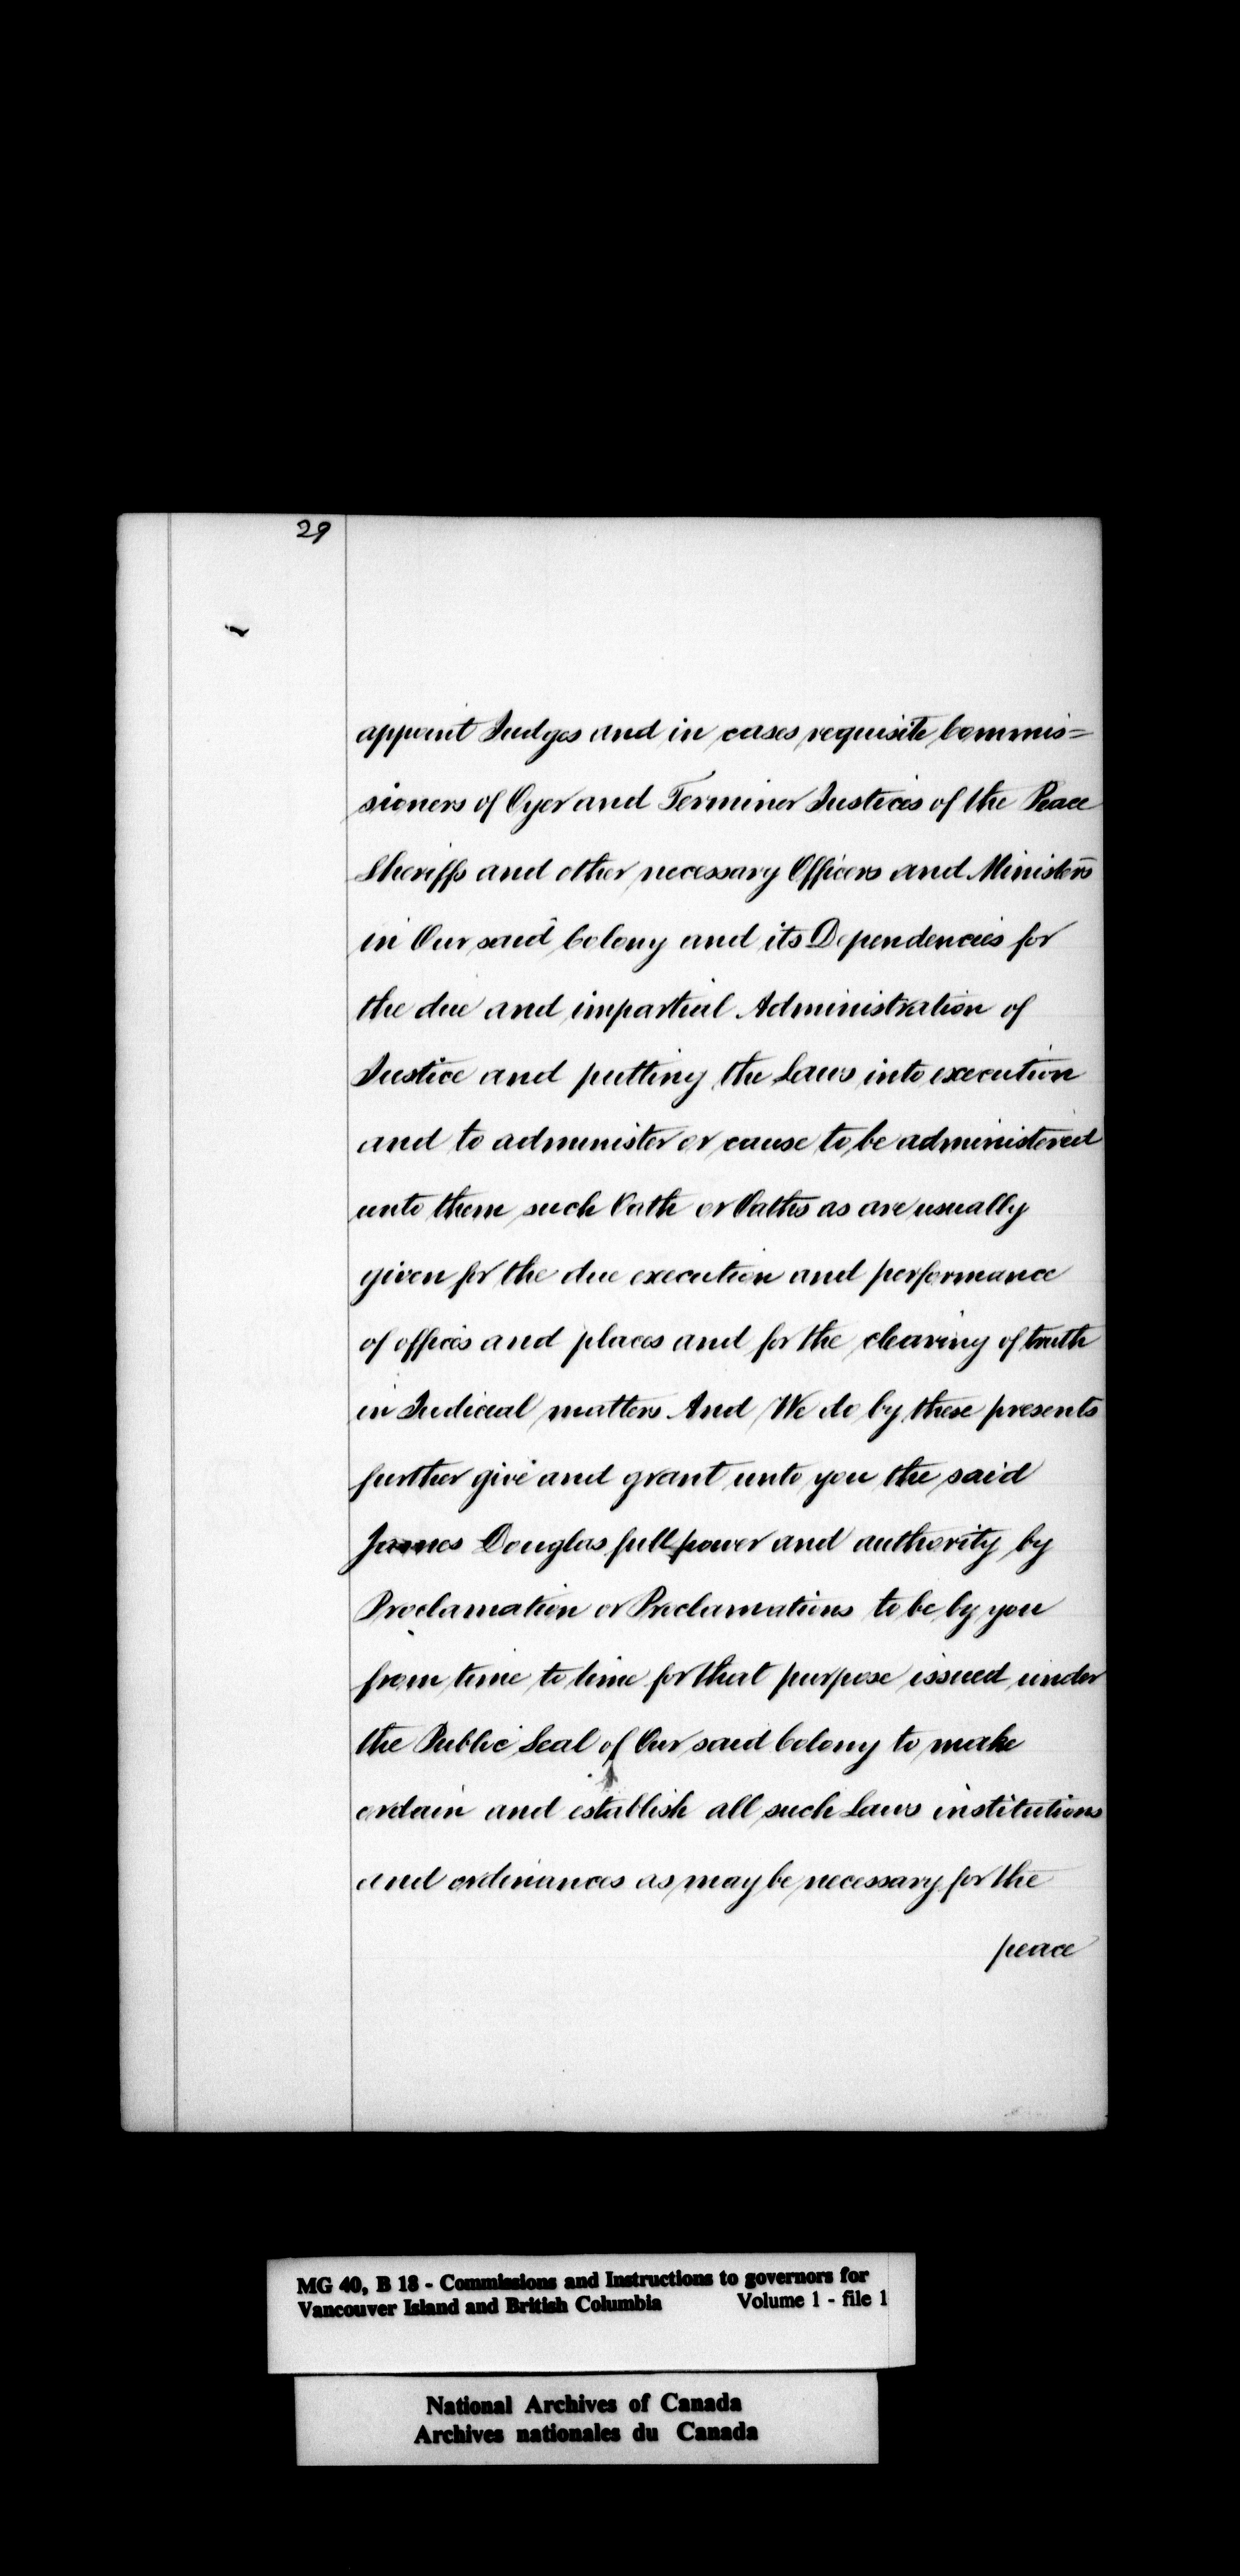 29
appoint Judges and in cases requisite Commis=
sioners of Oyer and Terminer Justices of the Peace
Sheriffs and other necessary Officers and Ministers
in Our said Colony and its Dependencies for
the due and impartial Administration of
Justice and putting the Laws into execution
and to administer or cause to be administered
unto them such Oath or Oaths as are usually
given for the due execution and performance
of offices and places and for the clearing of truth
in Judicial matters And We do by these presents
further give and grant unto you the said
James Douglas full power and authority by
Proclamation or Proclamations to be by you
from time to time for that purpose issued under
the Public Seal of Our said Colony to make
ordain and establish all such Laws institutions
and ordinances as may be necessary for the
peace
MG 40, B 18 - Commissions and Instructions to governors for
Vancouver Island and British Columbia Volume 1 - file 1
National Archives of Canada
Archives nationales du Canada